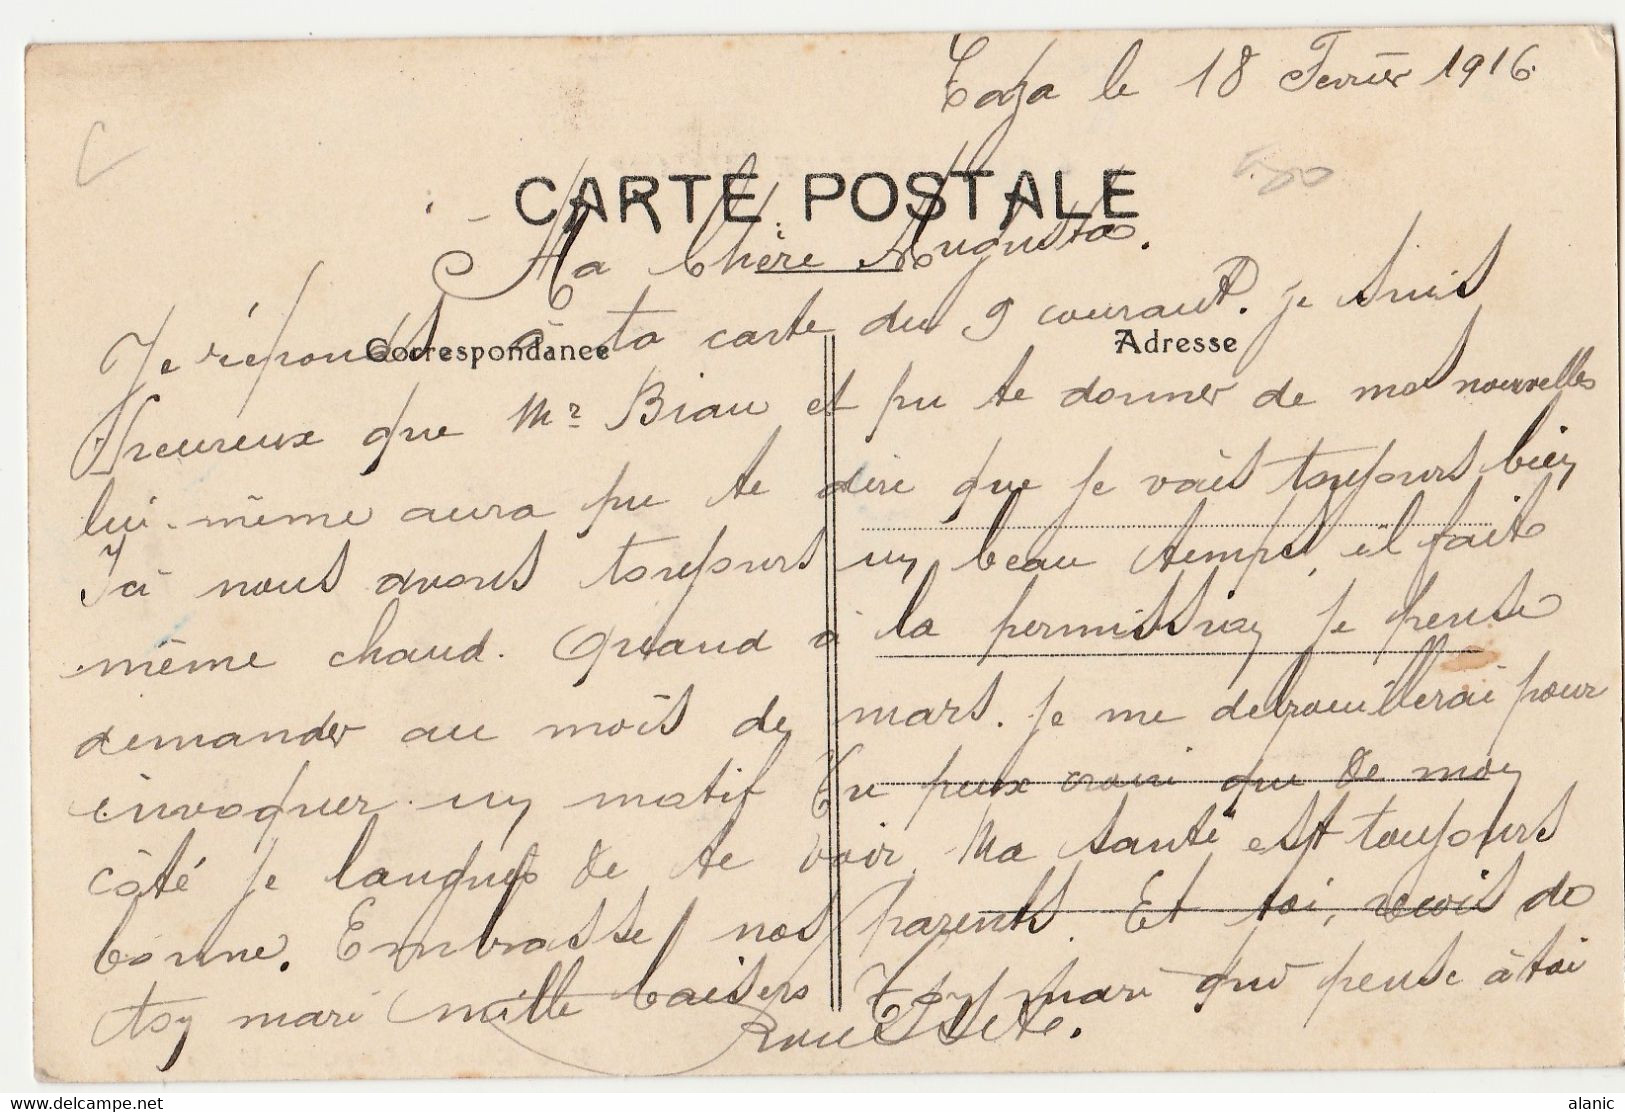 Taza le 18 Fevrier 1916.
CARTE POSTALE
Ma Chère Augusta.
Correspondance
Adresse
Je réponds à ta carte du 9 courant. je suis
heureux que Mr Biau et pu te donner de mes nouvelles
lui-même aura pu te dire que je vais toujours bien
Ici nous avons toujours un beau temps, il fait
même chaud. Quand à la permission je pense
demander au mois de mars. Je me debrouillerai pour
invoquer un motif Tu peux croire que de mon
côté je languis de te voir. Ma santé est toujours
bonne. Embrasse nos parents. Et toi, recois de
ton mari mille baisers Ton mari qui pense à toi
delcampe.net
alanic